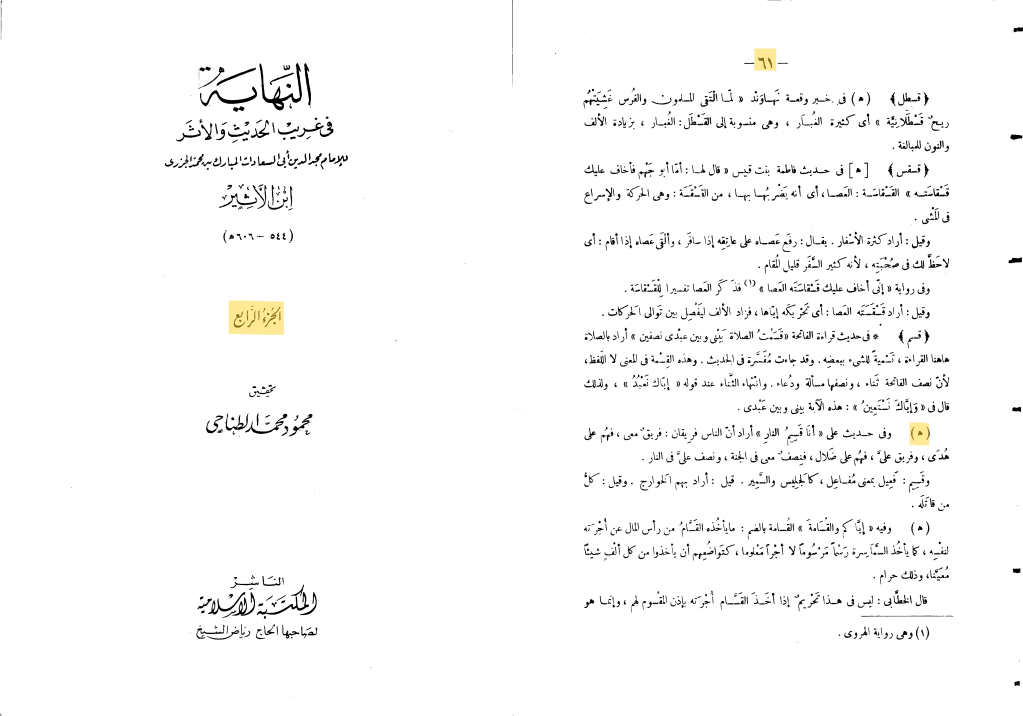 — ٦١ —
﴿ قسطل ﴾ ( ه ) فى خبر وقعة نَهاوَنْد « لمّا الْتَقى المسلمون والفُرْس غَشِيَتْهُم
ريحٌ قَسْطَلَانِيَّة » أى كثيرة الغُبار ، وهى منسوبة إلى القَسْطَل : الغُبار ، بزيادة الألف
والنون للمبالغة .
﴿ قسقس ﴾ [ ه ] فى حديث فاطمة بنت قيس « قال لها : أمّا أبو جَهْم فأخاف عليك
قَسْقاسَتَه » القَسْقاسَة : العصا ، أى أنه يَضْرِبُها بها ، من القَسْقَسة : وهى الحركة والإسراع
فى المَشْى .
وقيل : أراد كثرة الأسْفار . يقال : رفَع عَصاه على عاتِقِه إذا سافَر ، وألْقَى عَصاه إذا أقام : أى
لاحَظَّ لك فى صُحْبَتِه ، لأنه كثير السَّفَر قليل المُقام .
وفى رواية « إنّى أخاف عليك قَسْقاسَتَه العصا » (١) فذَكَر العصا تفسيرا لِلْقَسْقاسَة .
وقيل : أراد قَسْقَسَتَه العصا : أى تَحْرِيكَه إيّاها ، فزاد الألف ليَفْصِل بين تَوالى الحركات .
﴿ قسم ﴾ * فى حديث قراءة الفاتحة « قَسَمْتُ الصلاة بَيْنى وبين عبْدى نصفين » أراد بالصلاة
هاهنا القراءة ، تَسْمِيةً للشىء ببعضِه . وقد جاءت مُفَسَّرة فى الحديث . وهذه القِسْمة فى المعنى لا اللفظ ،
لأنّ نصف الفاتحة ثَناء ، ونصفها مسألة ودُعاء . وانتهاء الثَّناء عند قوله « إيّاك نَعْبُدُ » ، ولذلك
قال فى « وَإيّاكَ نَسْتَعِينُ » : هذه الآية بينى وبين عَبْدى .
( ه ) وفى حديث على « أنا قَسِيمُ النارِ » أراد أنّ الناس فريقان : فريقٌ معى ، فهُم على
هُدًى ، وفريق علىَّ ، فهُم على ضَلال ، فنِصفٌ معى فى الجنة ، ونصف علىَّ فى النار .
وقَسِيم : فَعِيل بمعنى مُفاعِل ، كالجَلِيس والسَّمِير . قيل : أراد بهم الخوارج . وقيل : كلُّ
من قاتَلَه .
( ه ) وفيه « إيّاكم والقُسامَةَ » القُسامة بالضم : مايأخذه القَسَّامُ من رأس المال عن أُجْرَته
لنفْسِه ، كما يأخُذ السَّماسِرة رَسْمًا مَرْسُومًا لا أجْرًا مَعْلوما ، كتَواضُعِهم أن يأخذوا من كل ألْفٍ شيئًا
مُعَيَّنا ، وذلك حرام .
قال الخطَّابى : ليس فى هذا تَحْرِيمٌ إذا أخَذ القَسَّام أُجْرَته بإذن المَقْسوم لهم ، وإنما هو
(١) وهى رواية الهروى .
النِّهَايَة
فى غريب الحديث والأثر
للإمام مجد الدين أبى السعادات المبارك بن محمد الجزرى
ابن الأثير
(٥٤٤ – ٦٠٦ ه)
الجزء الرابع
تحقيق
محمود محمد الطناحى
الناشر
المكتبة الإسلامية
لصاحبها الحاج رياض الشيخ